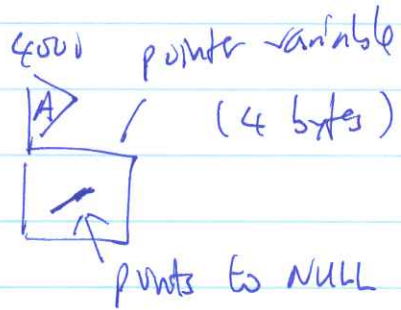 4000 pointer variable
A (4 bytes)
points to NULL